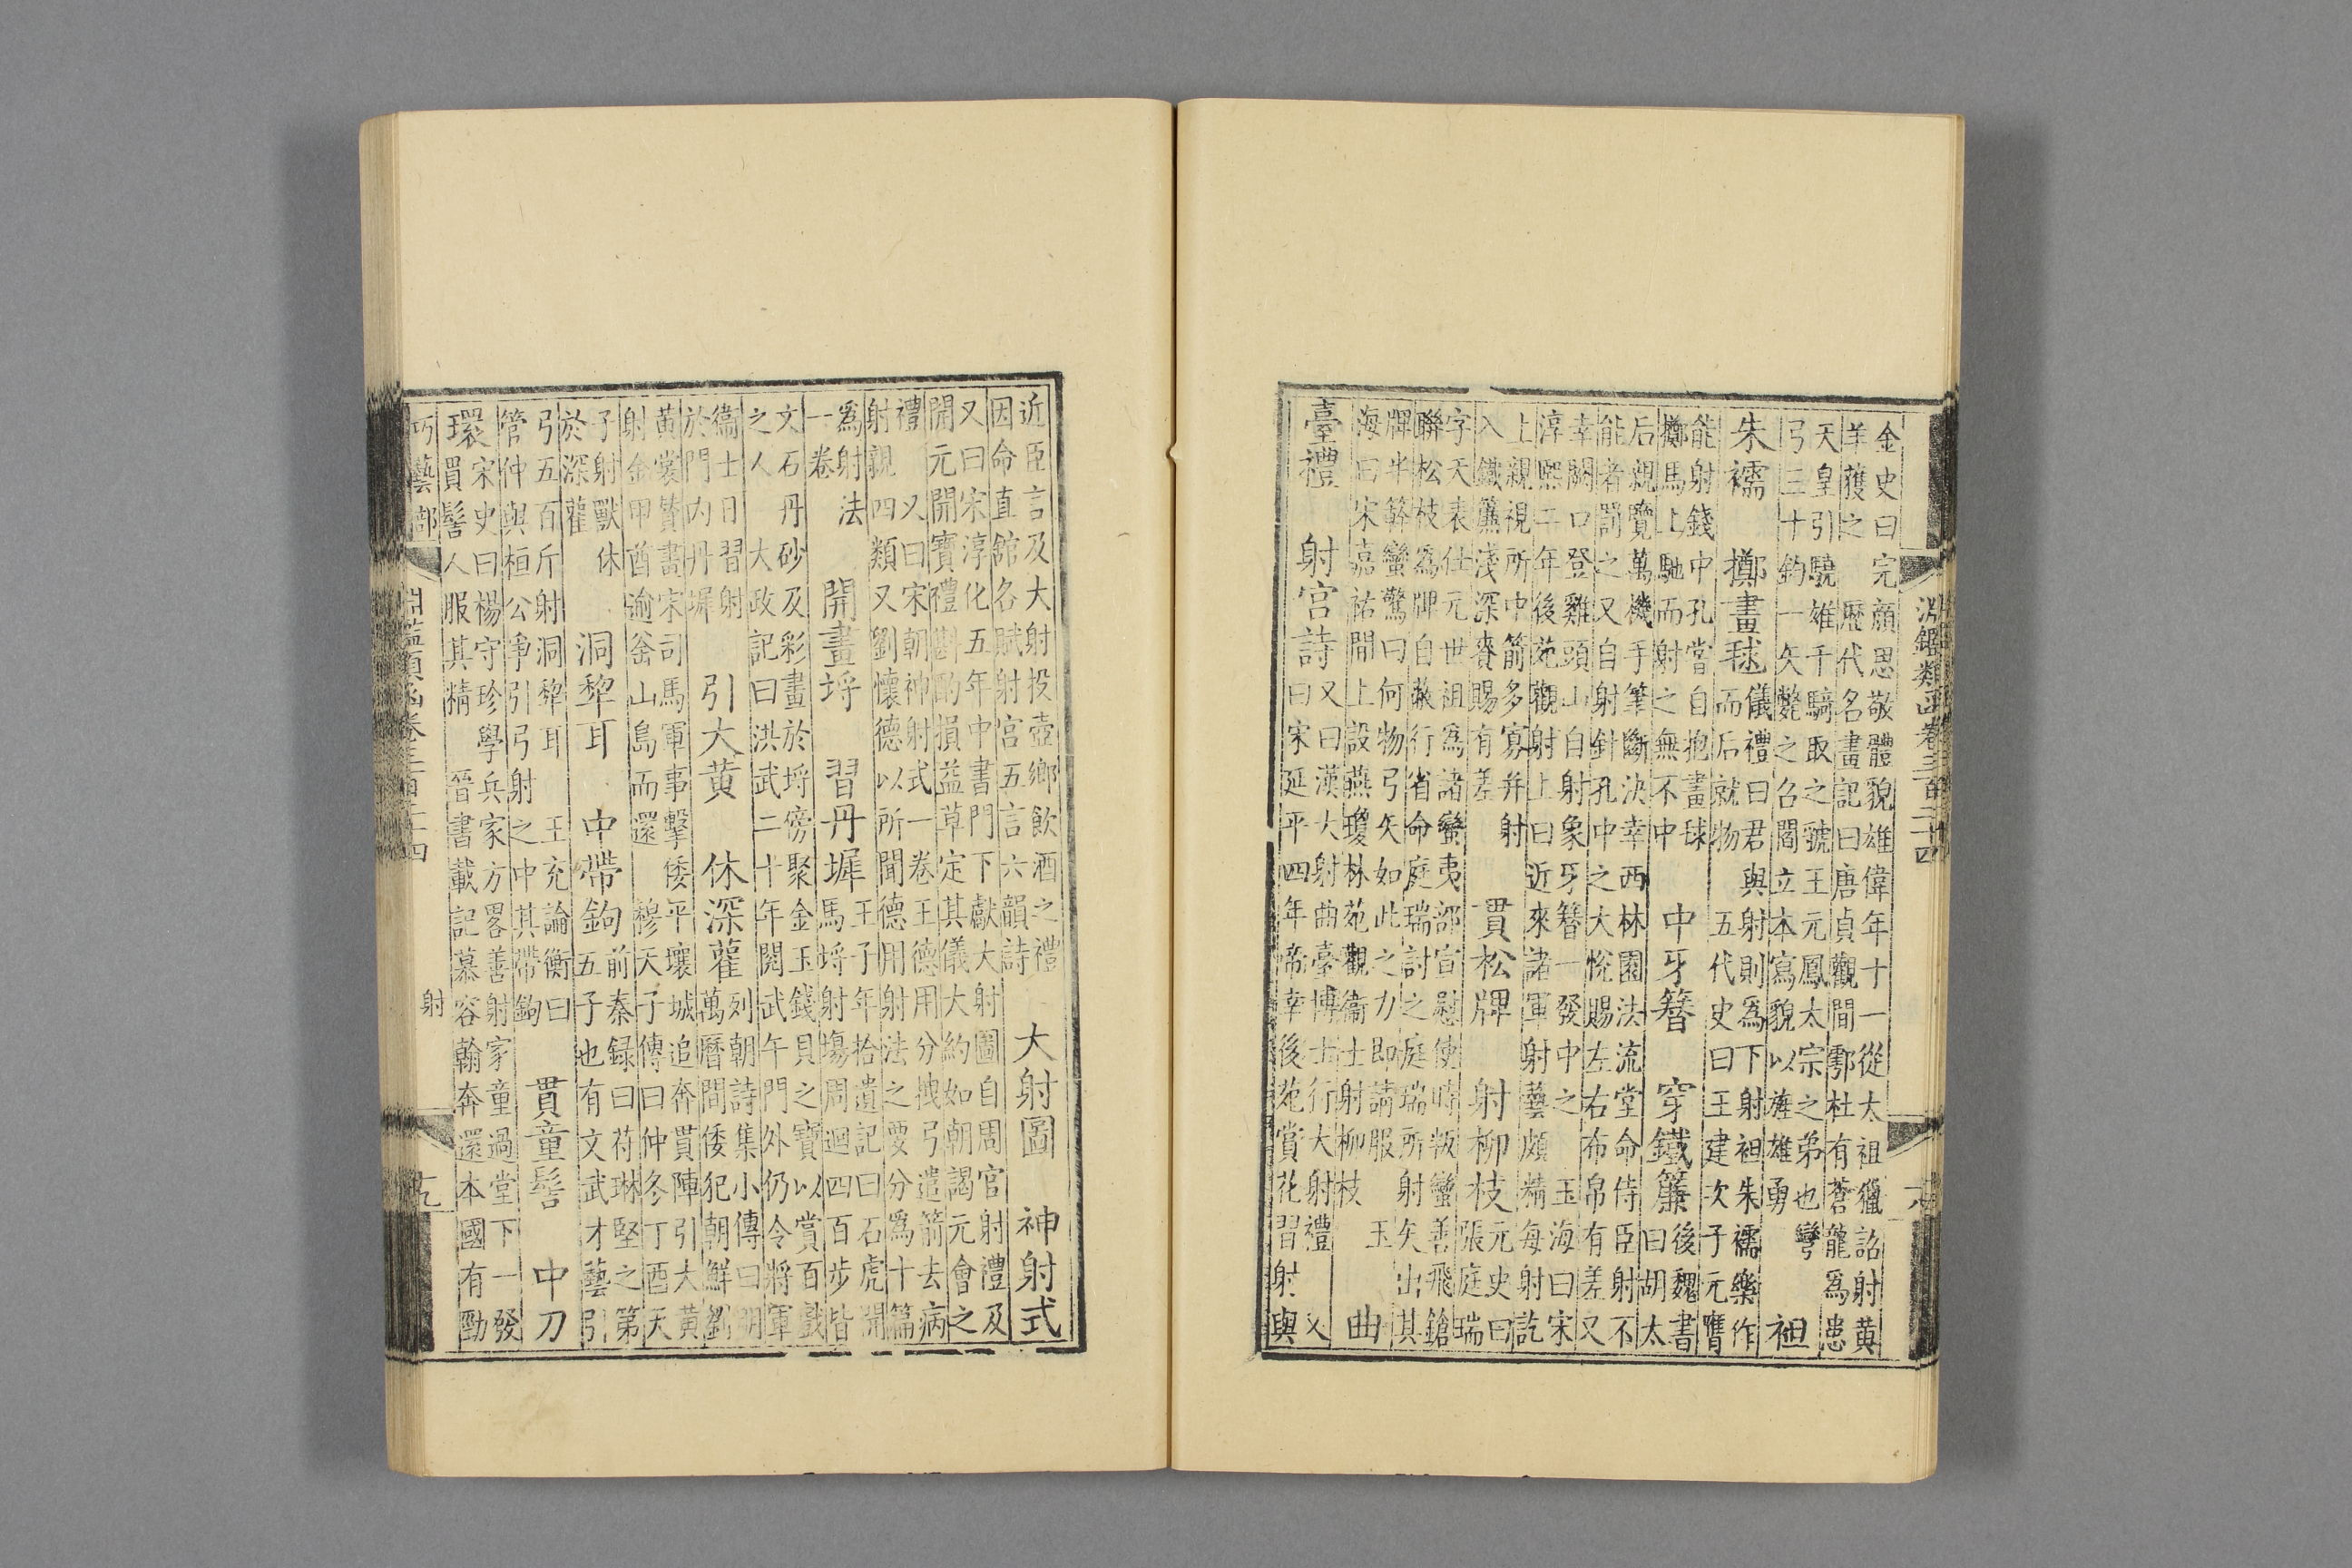 淵鑑類函卷三百二十四
金史曰完顏思敬體貌雄偉年十一從太祖獵詔射黃
羊獲之 歷代名畫記曰唐貞觀間鄠杜有蒼龍為患
天皇引驍雄千騎取之虢王元鳳太宗之弟也彎
弓三十鈞一矢斃之召閻立本寫貌以旌雄勇
袒
朱襦 擲畫毬
儀禮曰君與射則為下射袒朱襦樂作
而后就物 五代史曰王建次子元膺
能射錢中孔嘗自抱畫毬
擲馬上馳而射之無不中
中牙簪 穿鐵簾
後魏書
曰胡太
后親覽萬機手筆斷決幸西林園法流堂命侍臣射不
能者罰之又自射針孔中之大悅賜左右布帛有差又
幸闕口登雞頭山自射象牙簪一發中之 玉海曰宋
淳熙二年後苑觀射上曰近來諸軍射藝頗精每射訖
上親視所中箭多寡并射
入鐵簾淺深賚賜有差
貫松牌 射柳枝
元史曰
張庭瑞
字天表仕元世祖為諸蠻夷部宣慰使時叛蠻善飛鎗
聯松枝為牌自蔽行省命庭瑞討之庭瑞所射矢出其
牌半簳蠻驚曰何物弓矢如此之力即請服 玉
海曰宋嘉祐間上設燕瓊林苑觀衛士射柳枝
曲
臺禮 射宮詩
又曰漢大射曲臺博士行大射禮 又
曰宋延平四年帝幸後苑賞花習射與
近臣言及大射投壺鄉飲酒之禮
因命直館各賦射宮五言六韻詩
大射圖 神射式
又曰宋淳化五年中書門下獻大射圖自周官射禮及
開元開寶禮斟酌損益草定其儀大約如朝謁元會之
禮 又曰宋朝神射式一卷王德用分拽弓遣箭去病
射親四類又劉懷德以所聞德用射法之要分為十篇
為射法
一卷
開畫埒 習丹墀
王子年拾遺記曰石虎開
馬埒射塲周迴四百步皆
文石丹砂及彩畫於埒傍聚金玉錢貝之寶以賞百戲
之人 大政記曰洪武二十年閱武午門外仍令將軍
衛士日習射
於門內丹墀
引大黃 休深雚
列朝詩集小傳曰明
萬曆間倭犯朝鮮劉
黃裳贊畫宋司馬軍事擊倭平壤城追奔貫陣引大黃
射金甲酋逾釜山島而還 穆天子傳曰仲冬丁酉天
子射獸休
於深雚
洞犂耳 中帶鉤
前秦録曰苻琳堅之第
五子也有文武才藝引
弓五百斤射洞犂耳 王充論衡曰
管仲與桓公爭引弓射之中其帶鉤
貫童髻 中刀
環
宋史曰楊守珍學兵家方畧善射家童過堂下一發
貫髻人服其精 晉書載記慕容翰奔還本國有勁
巧藝部 淵鑑類函卷三百二十四 射 十九